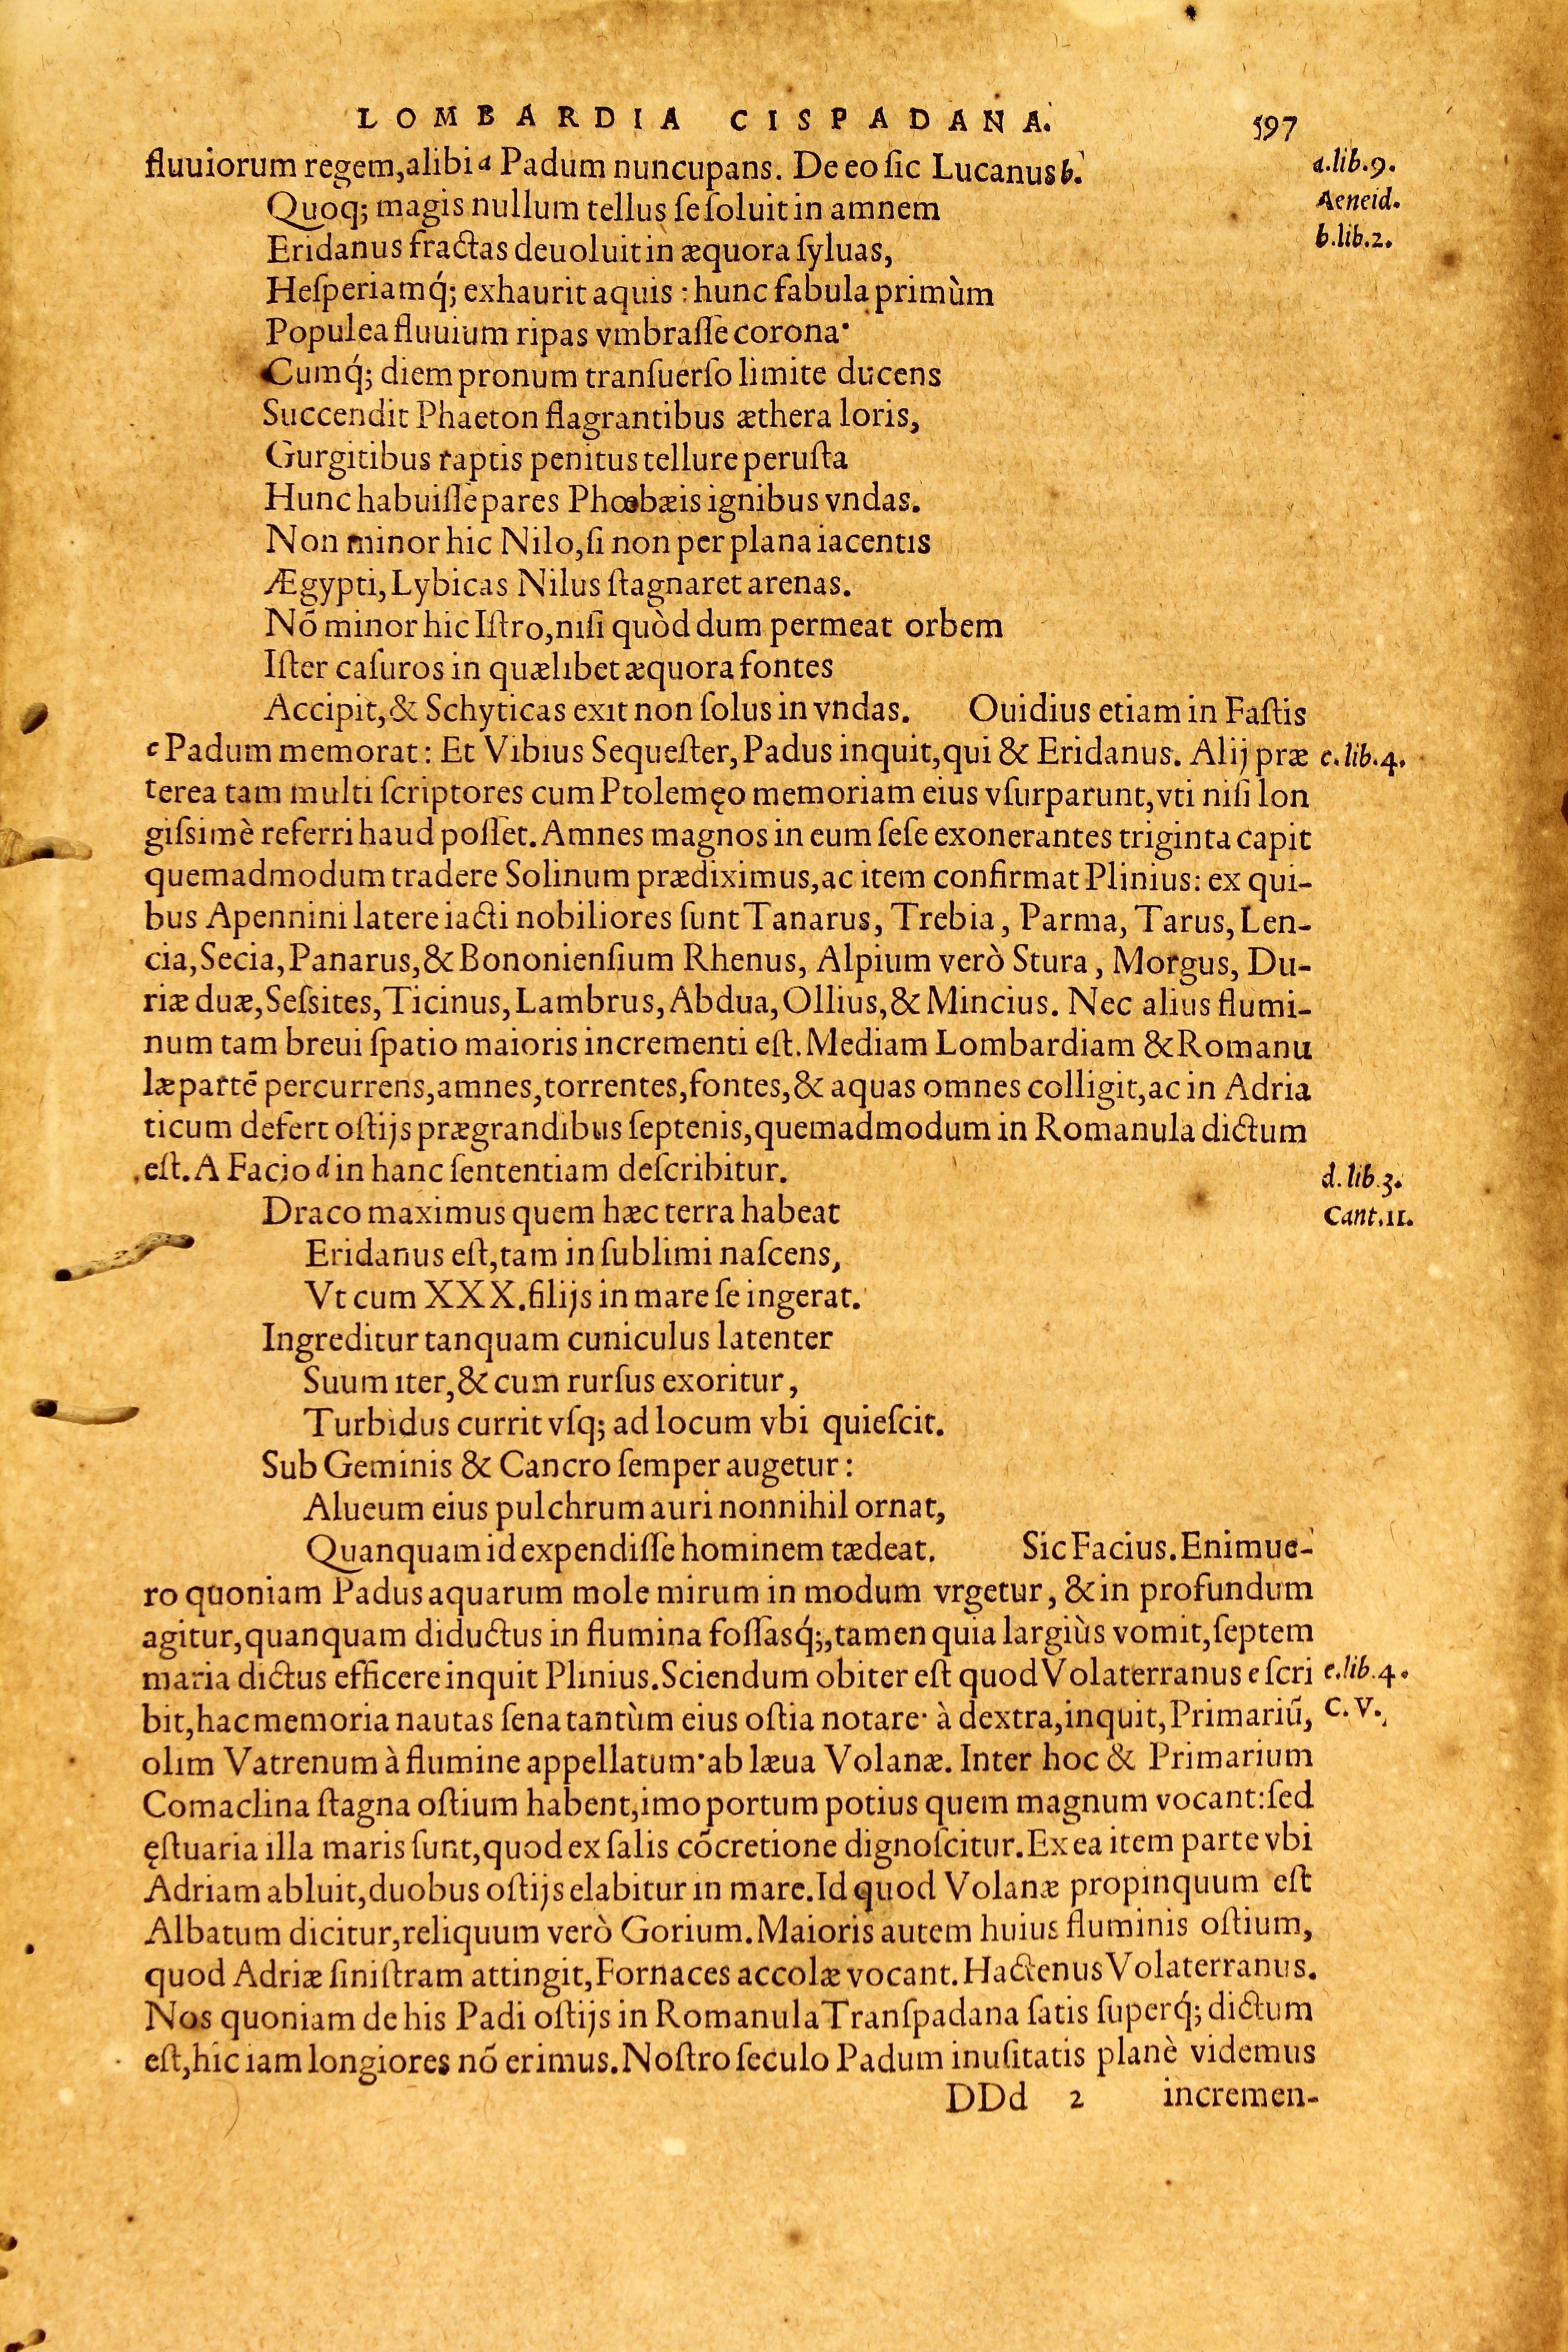 LOMBARDIA CISPADANA. 597
fluuiorum regem, alibi a Padum nuncupans. De eo ſic Lucanus b. a.lib.9.
Aeneid.
Quoq; magis nullum tellus ſe ſoluit in amnem
b.lib.2.
Eridanus fractas deuoluit in æquora ſyluas,
Heſperiamq́; exhaurit aquis : hunc fabula primùm
Populea fluuium ripas vmbraſſe corona·
Cumq́; diem pronum tranſuerſo limite ducens
Succendit Phaeton flagrantibus æthera loris,
Gurgitibus raptis penitus tellure peruſta
Hunc habuiſſe pares Phœbæis ignibus vndas.
Non minor hic Nilo, ſi non per plana iacentis
Ægypti, Lybicas Nilus ſtagnaret arenas.
Nō minor hic Iſtro, niſi quòd dum permeat orbem
Iſter caſuros in quælibet æquora fontes
Accipit, & Schyticas exit non ſolus in vndas. Ouidius etiam in Faſtis
c Padum memorat: Et Vibius Sequeſter, Padus inquit, qui & Eridanus. Alij præ c.lib.4.
terea tam multi ſcriptores cum Ptolemęo memoriam eius vſurparunt, vti niſi lon
giſsimè referri haud poſſet. Amnes magnos in eum ſeſe exonerantes triginta capit
quemadmodum tradere Solinum prædiximus, ac item confirmat Plinius: ex qui-
bus Apennini latere iacti nobiliores ſunt Tanarus, Trebia, Parma, Tarus, Len-
cia, Secia, Panarus, & Bononienſium Rhenus, Alpium verò Stura, Morgus, Du-
riæ duæ, Seſsites, Ticinus, Lambrus, Abdua, Ollius, & Mincius. Nec alius flumi-
num tam breui ſpatio maioris incrementi eſt. Mediam Lombardiam & Romanu
læ partē percurrens, amnes, torrentes, fontes, & aquas omnes colligit, ac in Adria
ticum defert oſtijs prægrandibus ſeptenis, quemadmodum in Romanula dictum
eſt. A Facio d in hanc ſententiam deſcribitur. d.lib.3.
Draco maximus quem hæc terra habeat Cant.11.
Eridanus eſt, tam in ſublimi naſcens,
Vt cum XXX. filijs in mare ſe ingerat.
Ingreditur tanquam cuniculus latenter
Suum iter, & cum rurſus exoritur,
Turbidus currit vſq; ad locum vbi quieſcit.
Sub Geminis & Cancro ſemper augetur:
Alueum eius pulchrum auri nonnihil ornat,
Quanquam id expendiſſe hominem tædeat. Sic Facius. Enimue-
ro quoniam Padus aquarum mole mirum in modum vrgetur, & in profundum
agitur, quanquam diductus in flumina foſſasq́;, tamen quia largiùs vomit, ſeptem
maria dictus efficere inquit Plinius. Sciendum obiter eſt quod Volaterranus e ſcri e.lib.4.
bit, hac memoria nautas ſena tantùm eius oſtia notare· à dextra, inquit, Primariū, C.V.
olim Vatrenum à flumine appellatum· ab læua Volanæ. Inter hoc & Primarium
Comaclina ſtagna oſtium habent, imo portum potius quem magnum vocant: ſed
ęſtuaria illa maris ſunt, quod ex ſalis cōcretione dignoſcitur. Ex ea item parte vbi
Adriam abluit, duobus oſtijs elabitur in mare. Id quod Volanæ propinquum eſt
Albatum dicitur, reliquum verò Gorium. Maioris autem huius fluminis oſtium,
quod Adriæ ſiniſtram attingit, Fornaces accolæ vocant. Hactenus Volaterranus.
Nos quoniam de his Padi oſtijs in Romanula Tranſpadana ſatis ſuperq́; dictum
eſt, hic iam longiores nō erimus. Noſtro ſeculo Padum inuſitatis planè videmus
DDd 2 incremen-